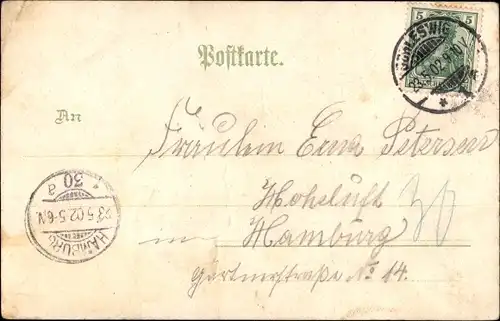 5 5
SCHLESWIG
23.5.02.
Postkarte.
An
Fräulein Emma Petersen
Hoheluft 30
in Hamburg
Gärtnerstraße No 14.
HAMBURG
23.5.02.5-6N.
* 30 a